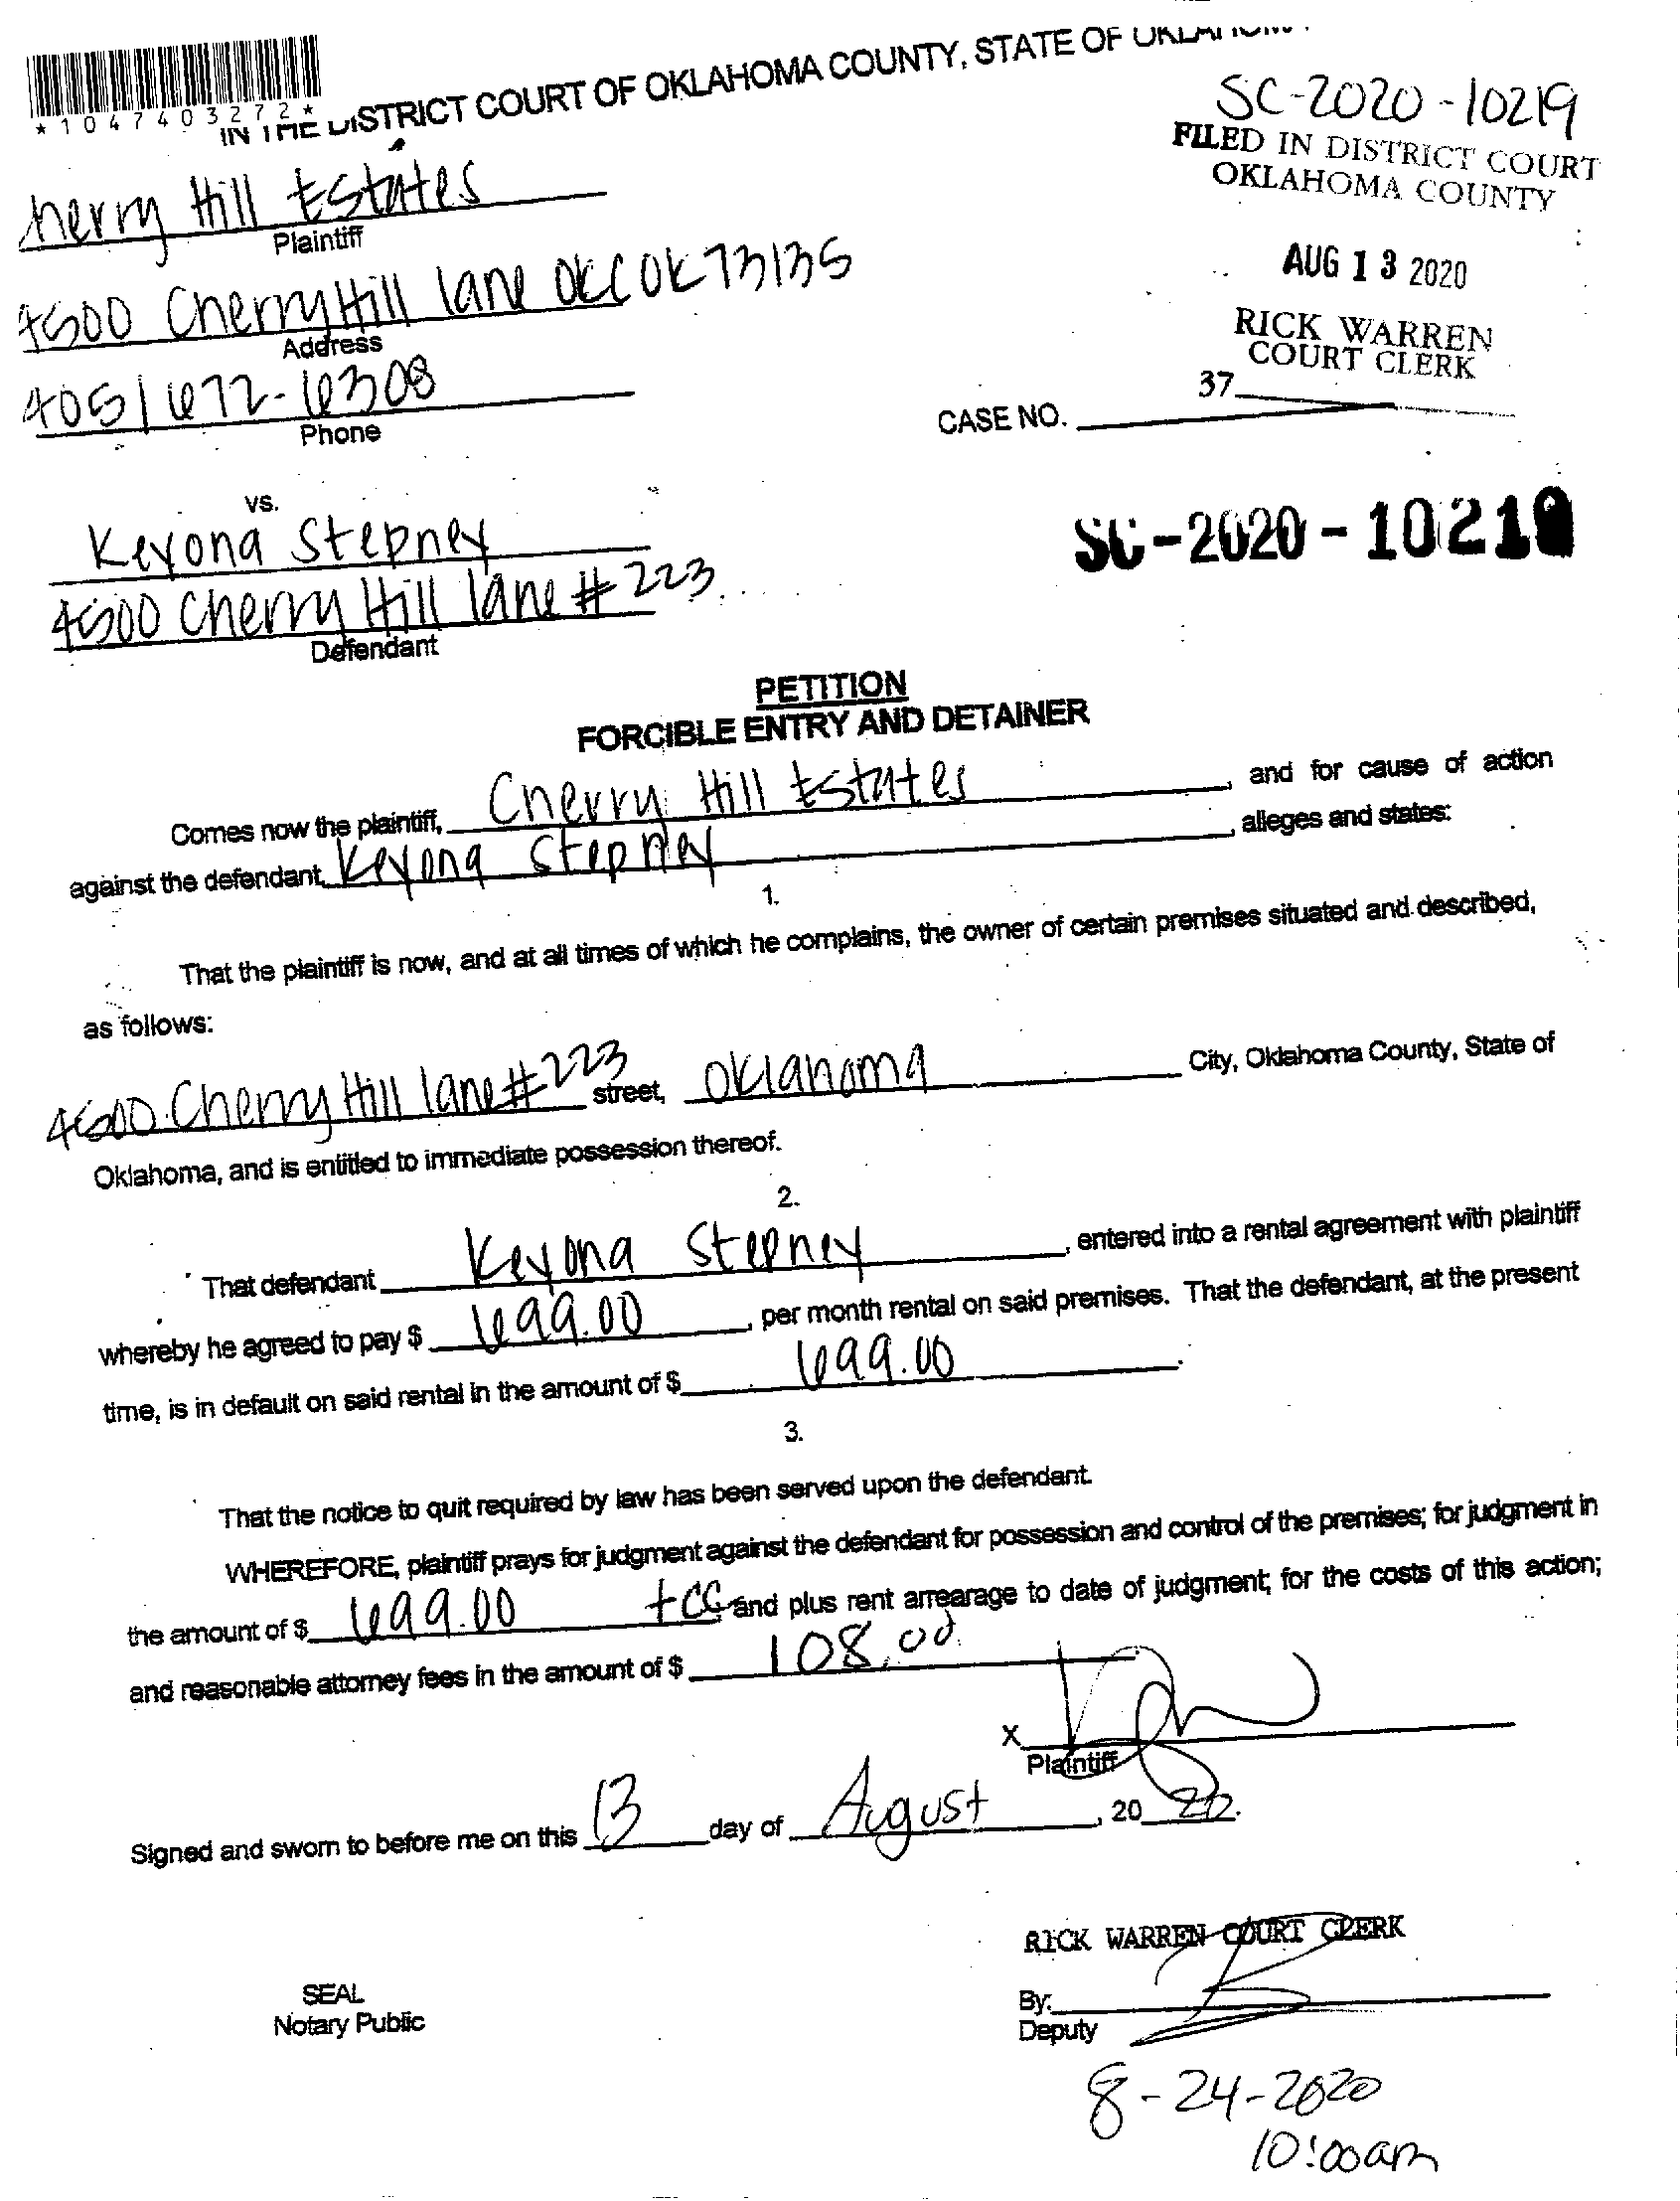 *1047403272*
IN THE DISTRICT COURT OF OKLAHOMA COUNTY, STATE OF OKLAHOMA
SC-2020-10219
FILED IN DISTRICT COURT
OKLAHOMA COUNTY
AUG 13 2020
RICK WARREN
COURT CLERK
37
herry Hill Estates
Plaintiff
4500 Cherry Hill lane OKC OK 73135
Address
405/672-6308
Phone
CASE NO.
vs.
Keyona Stepney
SC-2020-10219
4500 Cherry Hill lane # 223
Defendant
PETITION
FORCIBLE ENTRY AND DETAINER
Comes now the plaintiff, Cherry Hill Estates, and for cause of action
against the defendant, Keyona Stepney, alleges and states:
1.
That the plaintiff is now, and at all times of which he complains, the owner of certain premises situated and described,
as follows:
4500 Cherry Hill lane # 223 street, Oklahoma City, Oklahoma County, State of
Oklahoma, and is entitled to immediate possession thereof.
2.
That defendant Keyona Stepney, entered into a rental agreement with plaintiff
whereby he agreed to pay $ 699.00, per month rental on said premises. That the defendant, at the present
time, is in default on said rental in the amount of $ 699.00.
3.
That the notice to quit required by law has been served upon the defendant.
WHEREFORE, plaintiff prays for judgment against the defendant for possession and control of the premises; for judgment in
the amount of $ 699.00 +CC and plus rent arrearage to date of judgment; for the costs of this action;
and reasonable attorney fees in the amount of $ 108.00.
X
Plaintiff
Signed and sworn to before me on this 13 day of August, 2020.
RICK WARREN COURT CLERK
SEAL
Notary Public
By:
Deputy
8-24-2020
10:00am